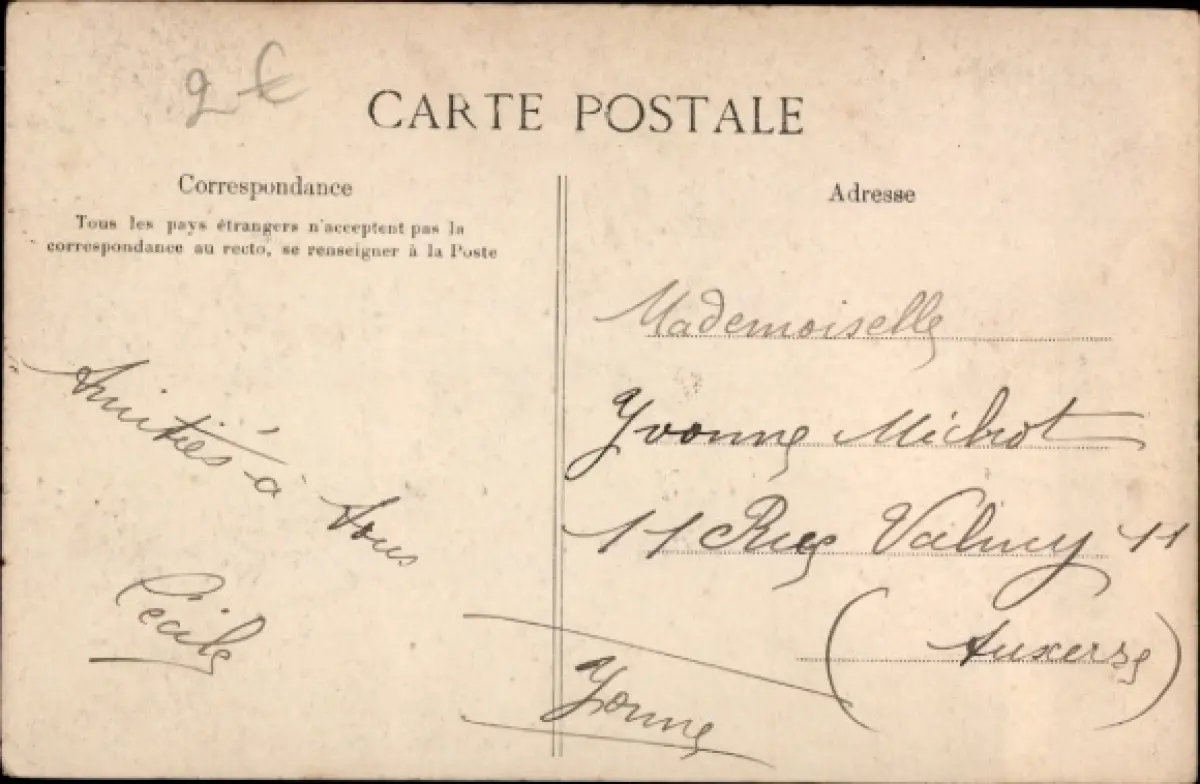 2 €
CARTE POSTALE
Correspondance
Tous les pays étrangers n'acceptent pas la
correspondance au recto, se renseigner à la Poste
Amitiés à tous
Cécile
Adresse
Mademoiselle
Yvonne Michot
11 Rue Valmy 11
(Auxerre)
Yonne